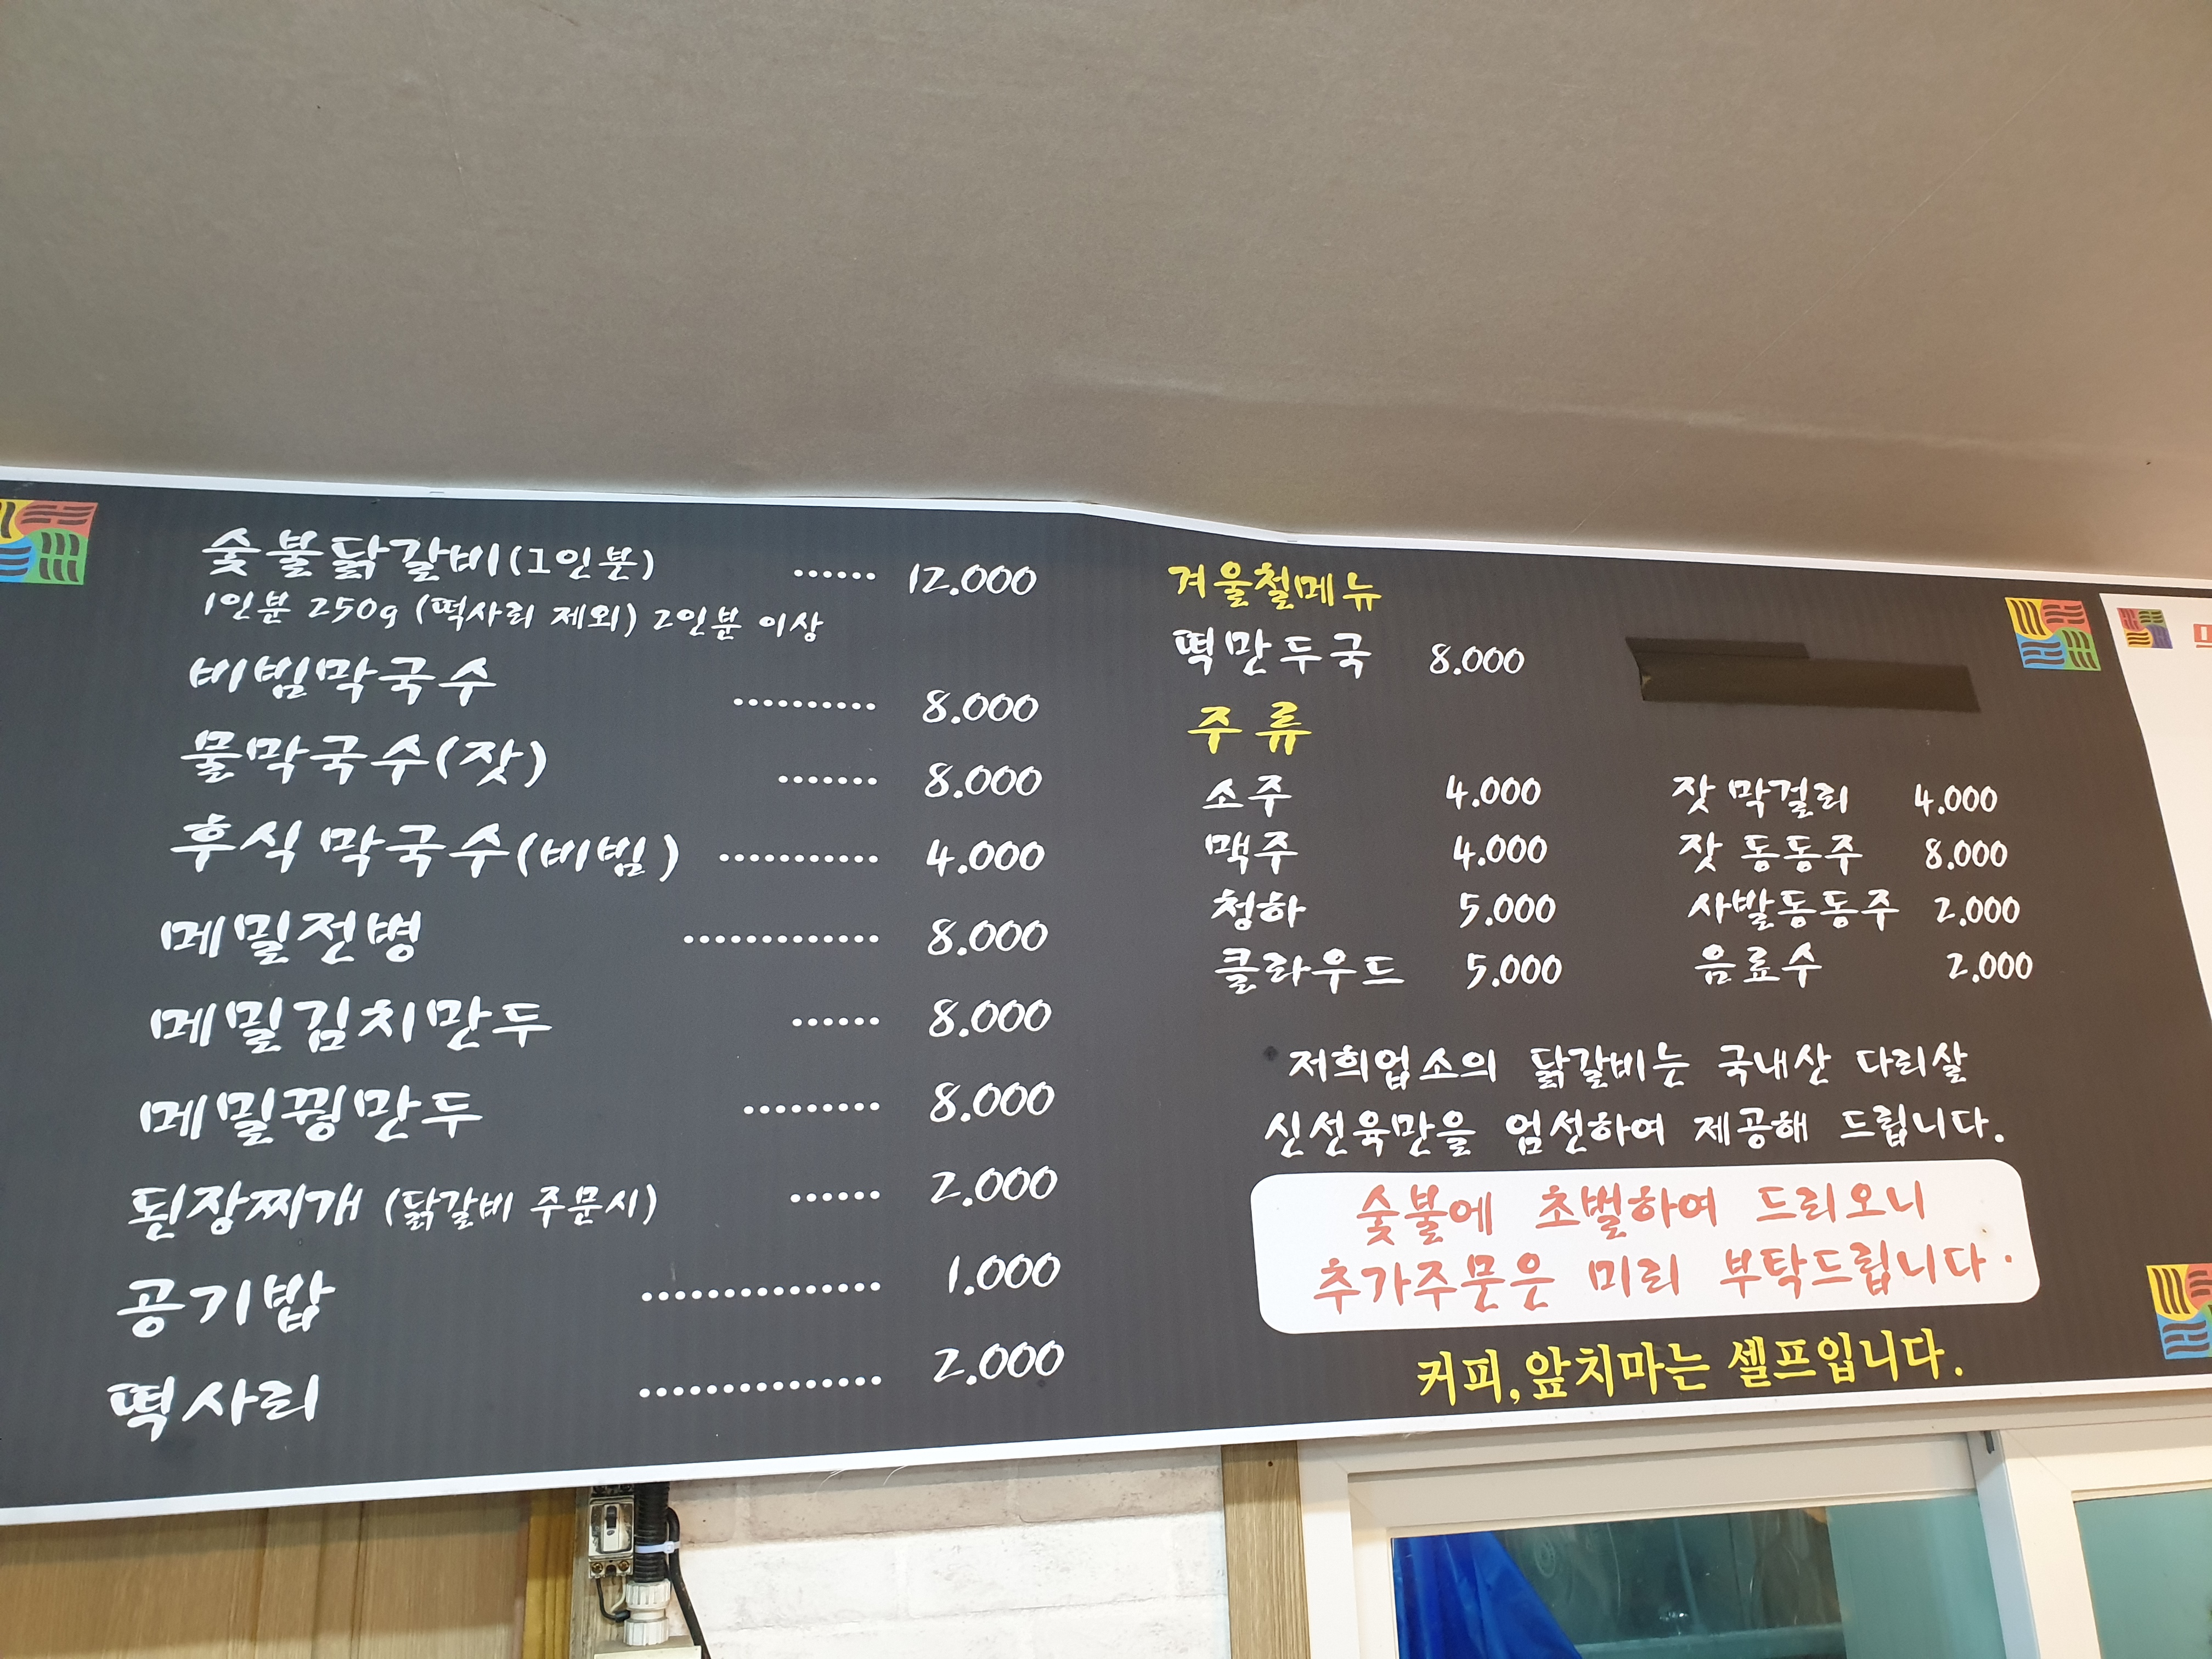 숯불닭갈비(1인분) ...... 12.000
1인분 250g (떡사리 제외) 2인분 이상
비빔막국수 .......... 8.000
물막국수(잣) ....... 8.000
후식 막국수(비빔) ........... 4.000
메밀전병 ............. 8.000
메밀김치만두 ...... 8.000
메밀꿩만두 .......... 8.000
된장찌개 (닭갈비 주문시) ...... 2.000
공기밥 ................ 1.000
떡사리 ................ 2.000
겨울철메뉴
떡만두국 8.000
주류
소주 4.000 잣 막걸리 4.000
맥주 4.000 잣 동동주 8.000
청하 5.000 사발동동주 2.000
클라우드 5.000 음료수 2.000
저희업소의 닭갈비는 국내산 다리살
신선육만을 엄선하여 제공해 드립니다.
숯불에 초벌하여 드리오니
추가주문은 미리 부탁드립니다.
커피,앞치마는 셀프입니다.